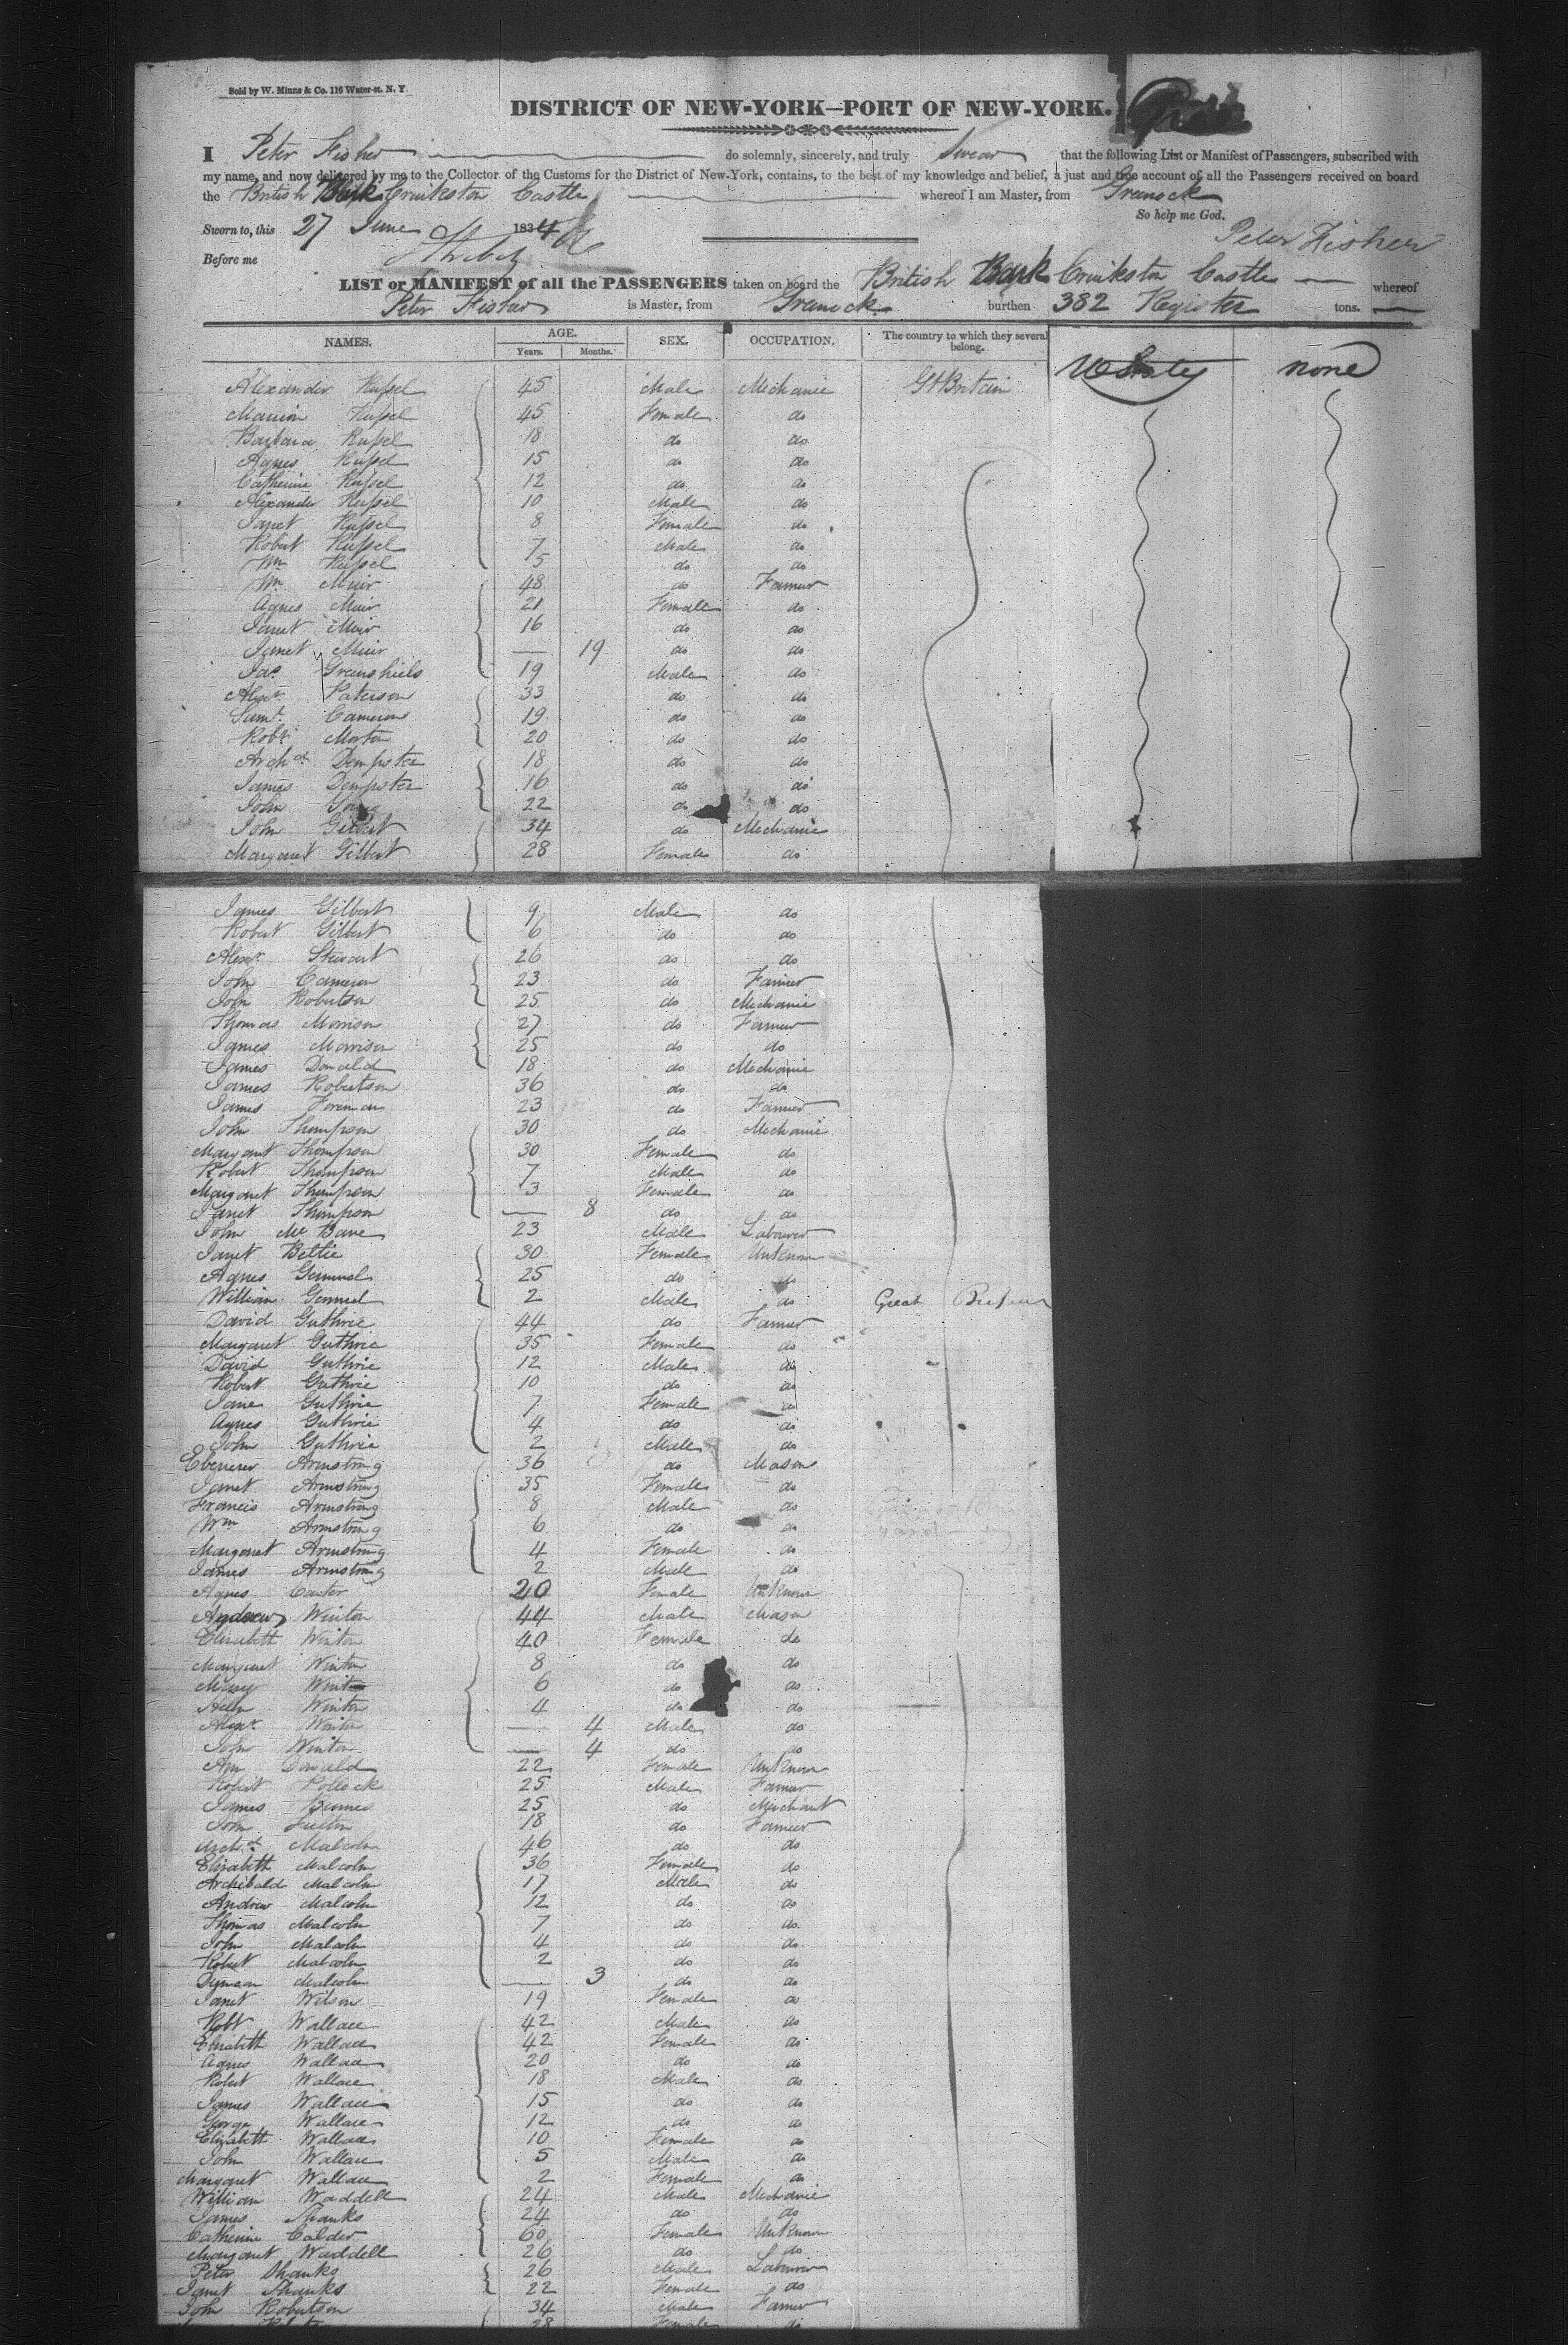 Sold by W. Minns & Co. 116 Water-st. N. Y.
DISTRICT OF NEW-YORK—PORT OF NEW-YORK.
I Peter Fisher do solemnly, sincerely, and truly Swear that the following List or Manifest of Passengers, subscribed with
my name, and now delivered by me to the Collector of the Customs for the District of New-York, contains, to the best of my knowledge and belief, a just and true account of all the Passengers received on board
the British Bark Cruikston Castle whereof I am Master, from Greenock
So help me God.
Sworn to, this 27 June 1834
Peter Fisher
Before me
LIST or MANIFEST of all the PASSENGERS taken on board the British Bark Cruikston Castle whereof
Peter Fisher is Master, from Greenock burthen 382 Register tons.
NAMES. AGE. Years. Months. SEX. OCCUPATION. The country to which they several belong.
U States none
Alexander Russel 45 Male Mechanic Gt Britain
Marion Russel 45 Female do
Barbara Russel 18 do do
Agnes Russel 15 do do
Catherine Russel 12 do do
Alexander Russel 10 Male do
Janet Russel 8 Female do
Robert Russel 7 Male do
Wm Russel 5 do do
Wm Muir 48 do Farmer
Agnes Muir 21 Female do
Janet Muir 16 do do
Janet Muir — 19 do do
Jas Greenshiels 19 Male do
Alexr Paterson 33 do do
Saml Cameron 19 do do
Robt Morton 20 do do
Archd Dempster 18 do do
James Dempster 16 do do
John 22 do do
John Gilbert 34 do Mechanic
Margaret Gilbert 28 Female do
James Gilbert 9 Male do
Robert Gilbert 6 do do
Alexr Stewart 26 do do
John Cameron 23 do Farmer
John Robertson 25 do Mechanic
Thomas Morrison 27 do Farmer
James Morrison 25 do do
James Donald 18 do Mechanic
James Robertson 36 do do
James Foreman 23 do Farmer
John Thompson 30 do Mechanic
Margaret Thompson 30 Female do
Robert Thompson 7 Male do
Margaret Thompson 3 Female do
Janet Thompson — 8 do do
John McBane 23 Male Labourer
Janet Bettie 30 Female Unknown
Agnes Gemmel 25 do do
William Gemmel 2 Male do Great Britain
David Guthrie 44 do Farmer
Margaret Guthrie 35 Female do
David Guthrie 12 Male do
Robert Guthrie 10 do do
Jane Guthrie 7 Female do
Agnes Guthrie 4 do do
John Guthrie 2 Male do
Ebenezer Armstrong 36 do Mason
Janet Armstrong 35 Female do
Francis Armstrong 8 Male do
Wm Armstrong 6 do do
Margaret Armstrong 4 Female do
James Armstrong 2 Male do
Agnes 20 Female Unknown
Andrew Winton 44 Male Mason
Elizabeth Winton 40 Female do
Margaret Winton 8 do do
Mary Winton 6 do do
Hellen Winton 4 do do
Alexr Winton — 4 Male do
John Winton — 4 do do
Ann Donald 22 Female Unknown
Robert Pollock 25 Male Farmer
James 25 do Merchant
John 18 do Farmer
Archd Malcolm 46 do do
Elizabeth Malcolm 36 Female do
Archibald Malcolm 17 Male do
Andrew Malcolm 12 do do
Thomas Malcolm 7 do do
John Malcolm 4 do do
Robert Malcolm 2 do do
Duncan Malcolm — 3 do do
Janet Wilson 19 Female do
Robt Wallace 42 Male do
Elizabeth Wallace 42 Female do
Agnes Wallace 20 do do
Robert Wallace 18 Male do
James Wallace 15 do do
George Wallace 12 do do
Elizabeth Wallace 10 Female do
John Wallace 5 Male do
Margaret Wallace 2 Female do
William Waddell 24 Male Mechanic
James Shanks 24 do do
Catherine Calder 60 Female Unknown
Margaret Waddell 26 do do
Peter Shanks 26 Male Labourer
Janet Shanks 22 Female do
John Robertson 34 Male Farmer
28 Female do